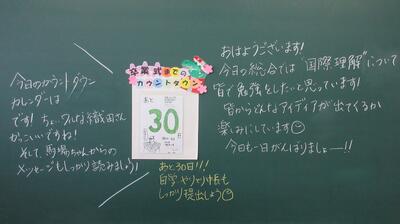 今日のカウントダウン
カレンダーは
です！ちょークールな織田さん
がっこいいですね！
そして、馬場ちゃんからの
メッセージもしっかり読みましょう！
卒業式までの
カウントダウン
あと
30
日
あと30日！！！
自学やりとり帳も
しっかり提出しよう
おはようございます！
今日の総合では“国際理解”について
皆で勉強をしたいと思っています！
皆からどんなアイディアが出てくるか
楽しみにしています
今日も一日がんばりましょー！！